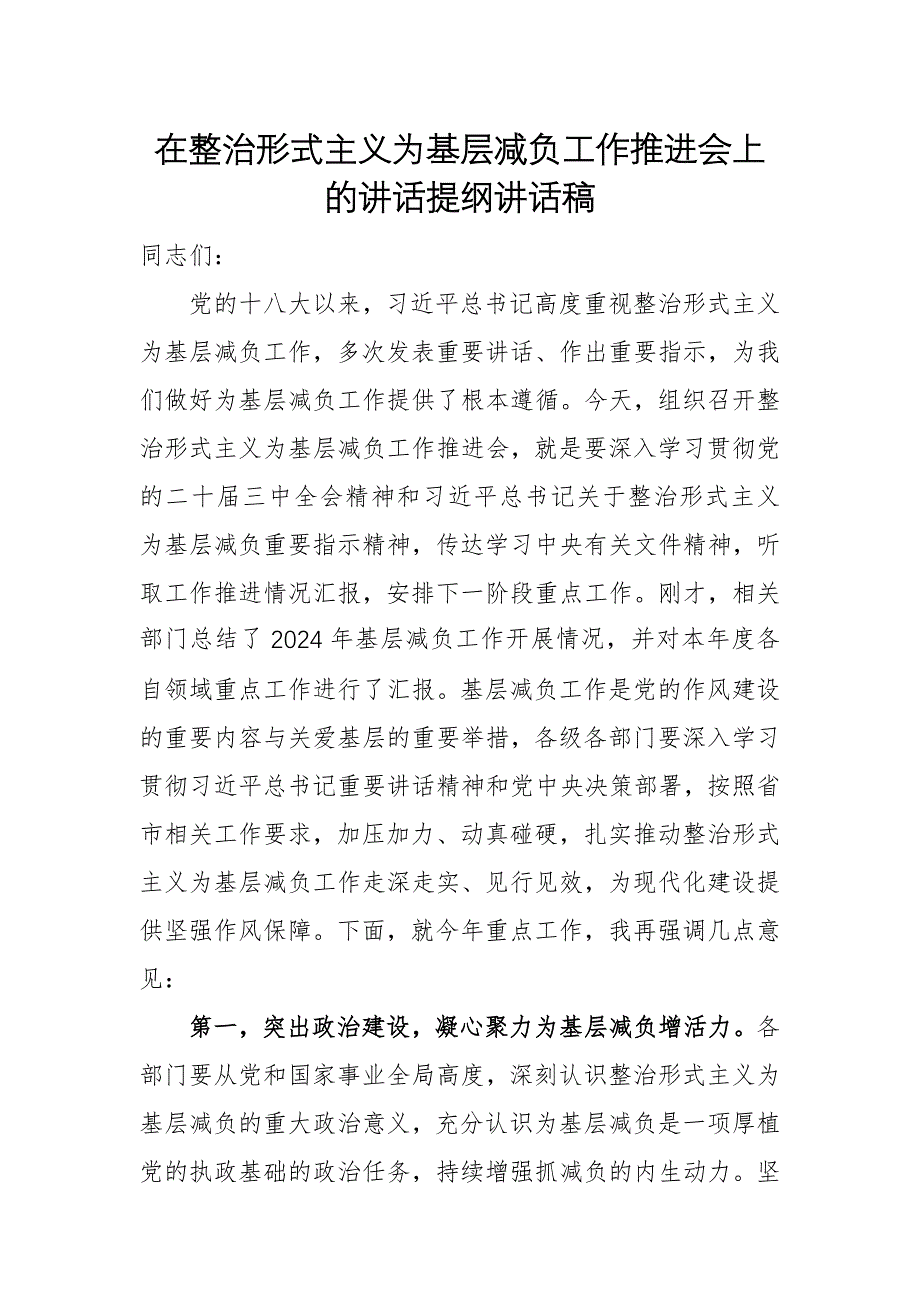 在整治形式主义为基层减负工作推进会上
的讲话提纲讲话稿
同志们：
党的十八大以来，习近平总书记高度重视整治形式主义
为基层减负工作，多次发表重要讲话、作出重要指示，为我
们做好为基层减负工作提供了根本遵循。今天，组织召开整
治形式主义为基层减负工作推进会，就是要深入学习贯彻党
的二十届三中全会精神和习近平总书记关于整治形式主义
为基层减负重要指示精神，传达学习中央有关文件精神，听
取工作推进情况汇报，安排下一阶段重点工作。刚才，相关
部门总结了 2024 年基层减负工作开展情况，并对本年度各
自领域重点工作进行了汇报。基层减负工作是党的作风建设
的重要内容与关爱基层的重要举措，各级各部门要深入学习
贯彻习近平总书记重要讲话精神和党中央决策部署，按照省
市相关工作要求，加压加力、动真碰硬，扎实推动整治形式
主义为基层减负工作走深走实、见行见效，为现代化建设提
供坚强作风保障。下面，就今年重点工作，我再强调几点意
见：
第一，突出政治建设，凝心聚力为基层减负增活力。各
部门要从党和国家事业全局高度，深刻认识整治形式主义为
基层减负的重大政治意义，充分认识为基层减负是一项厚植
党的执政基础的政治任务，持续增强抓减负的内生动力。坚